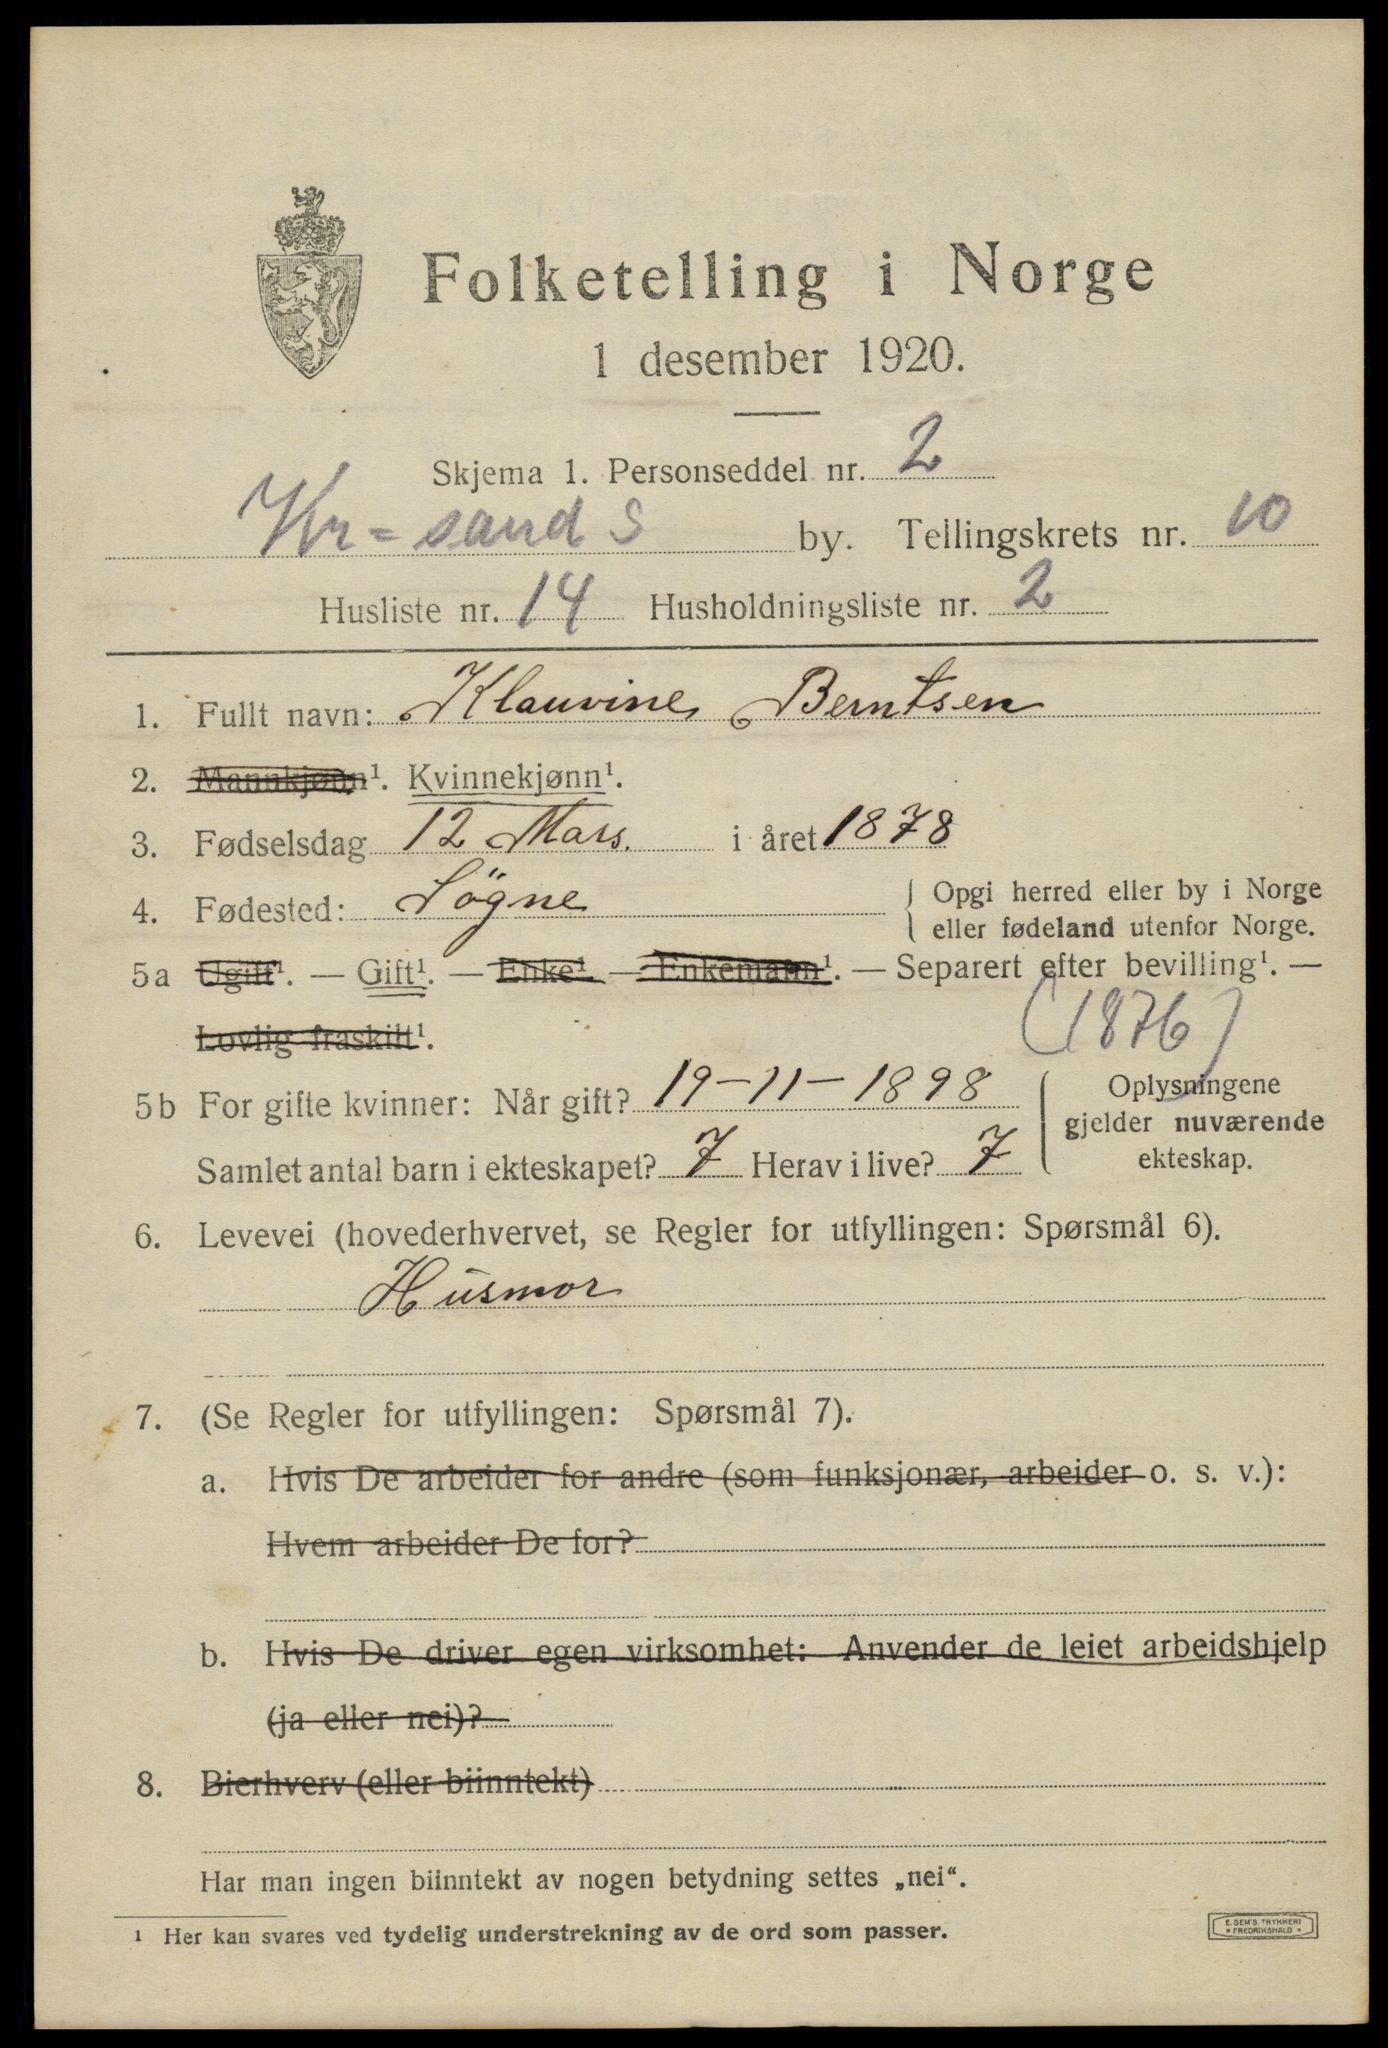 Folketelling i Norge
1 desember 1920.
Skjema 1. Personseddel nr. 2
Kr=sand S by. Tellingskrets nr. 10
Husliste nr. 14 Husholdningsliste nr. 2
1. Fullt navn: Klauvine Berntsen
2. Mannkjønn¹. Kvinnekjønn¹.
3. Fødselsdag 12 Mars. i året 1878
4. Fødested: Sögne { Opgi herred eller by i Norge
eller fødeland utenfor Norge.
5a Ugift¹. — Gift¹. — Enke¹ — Enkemann¹. — Separert efter bevilling¹. —
Lovlig fraskilt¹. (1876)
5b For gifte kvinner: Når gift? 19-11-1898 { Oplysningene
gjelder nuværende
Samlet antal barn i ekteskapet? 7 Herav i live? 7 ekteskap.
6. Levevei (hovederhvervet, se Regler for utfyllingen: Spørsmål 6).
Husmor
7. (Se Regler for utfyllingen: Spørsmål 7).
a. Hvis De arbeider for andre (som funksjonær, arbeider o. s. v.):
Hvem arbeider De for?
b. Hvis De driver egen virksomhet: Anvender de leiet arbeidshjelp
(ja eller nei)?
8. Bierhverv (eller biinntekt)
Har man ingen biinntekt av nogen betydning settes „nei“.
¹ Her kan svares ved tydelig understrekning av de ord som passer.
E. SEM'S TRYKKERI
• FREDRIKSHALD •